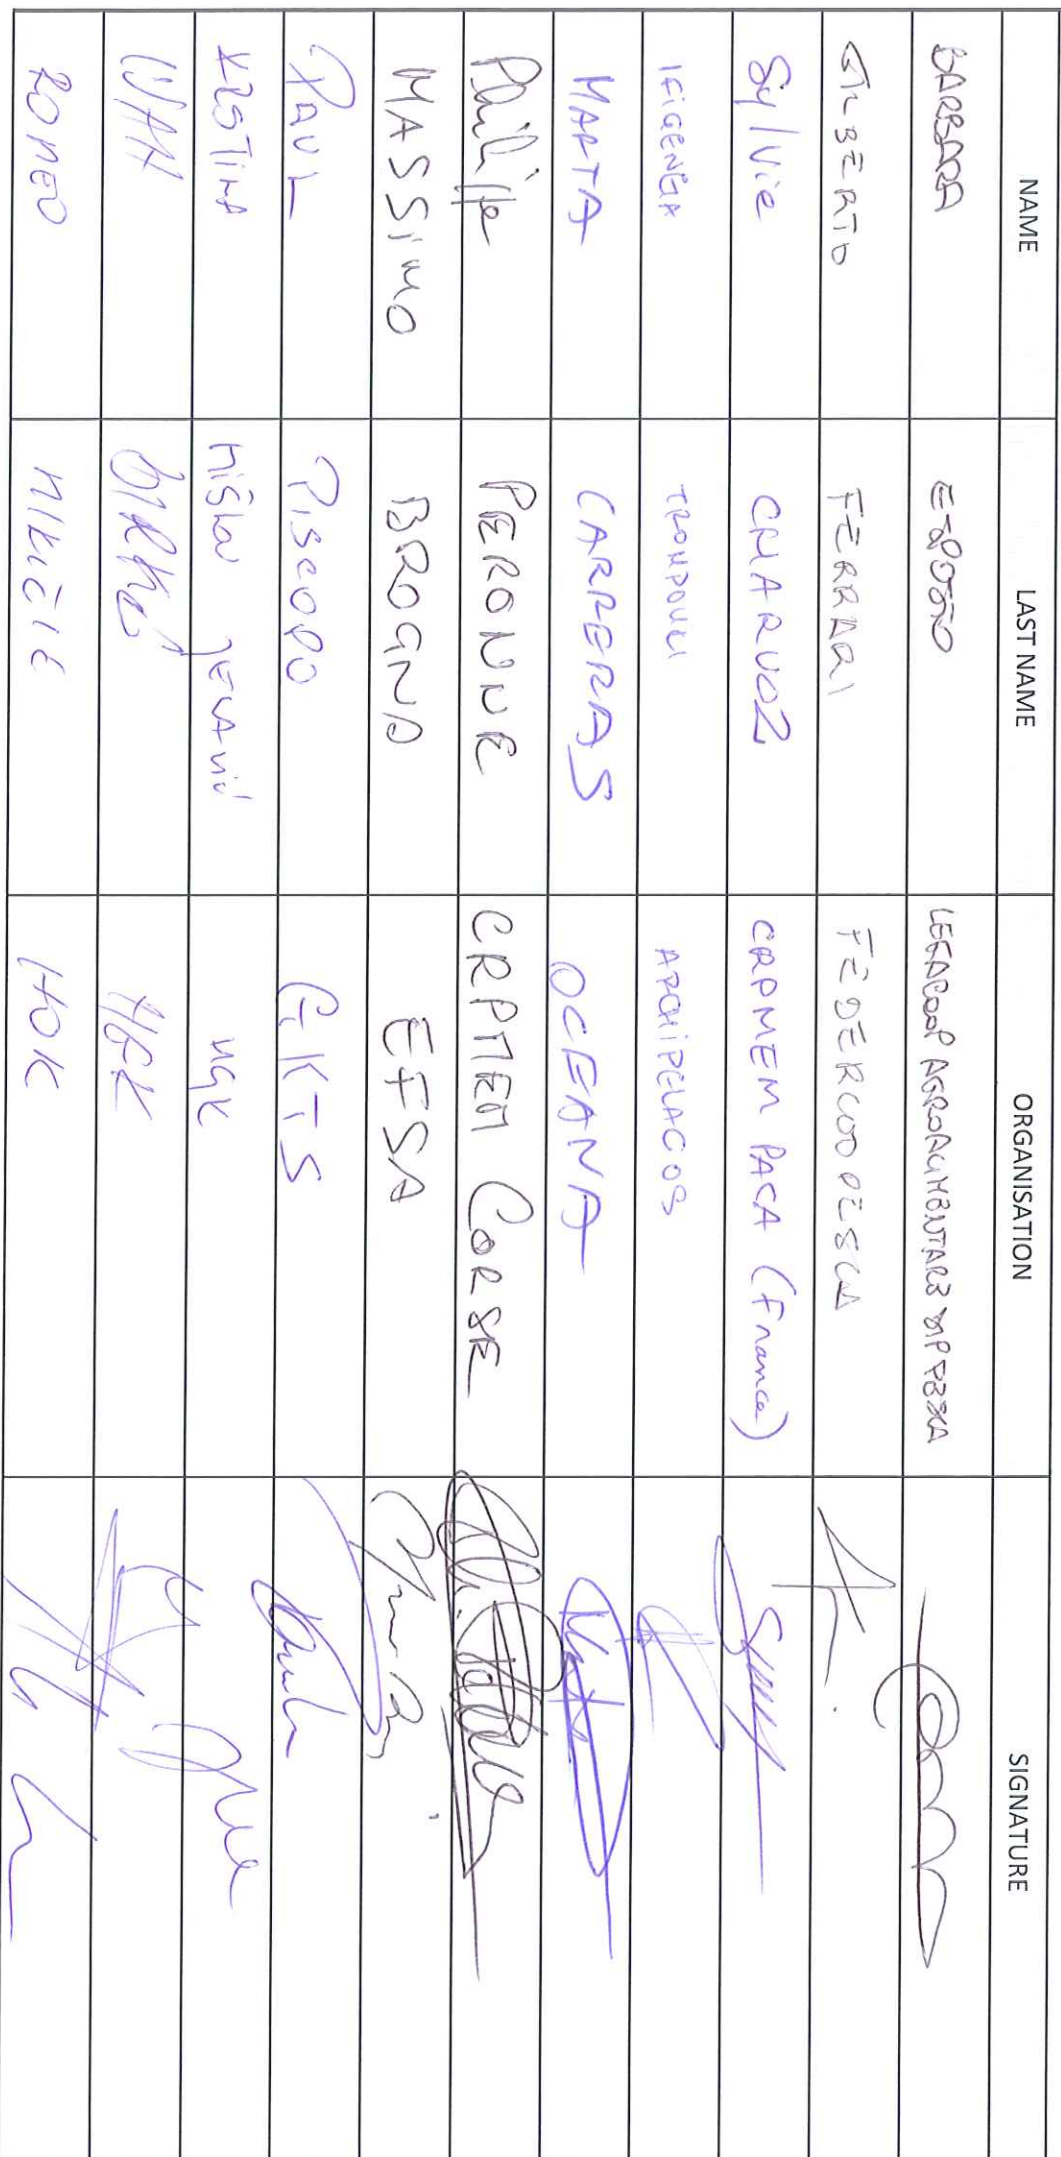 NAME LAST NAME ORGANISATION SIGNATURE
BARBARA ESPOSTO LEGACOOP AGROALIMENTARE DIP PESCA
GILBERTO FERRARI FEDERCOOPESCA
Sylvie CHARVOZ CRPMEM PACA (France)
IFIGENEIA TROMPOUKI ARCHIPELAGOS
MARTA CARRERAS OCEANA
Philippe PERONNE CRPMEM CORSE
MASSIMO BROGNA EFSA
PAUL Piscopo GKTS
KRSTINA Mišlov JELAVIĆ HGK
IVAN BIRKIĆ HGK
ROMEO NIKIČIĆ HOK